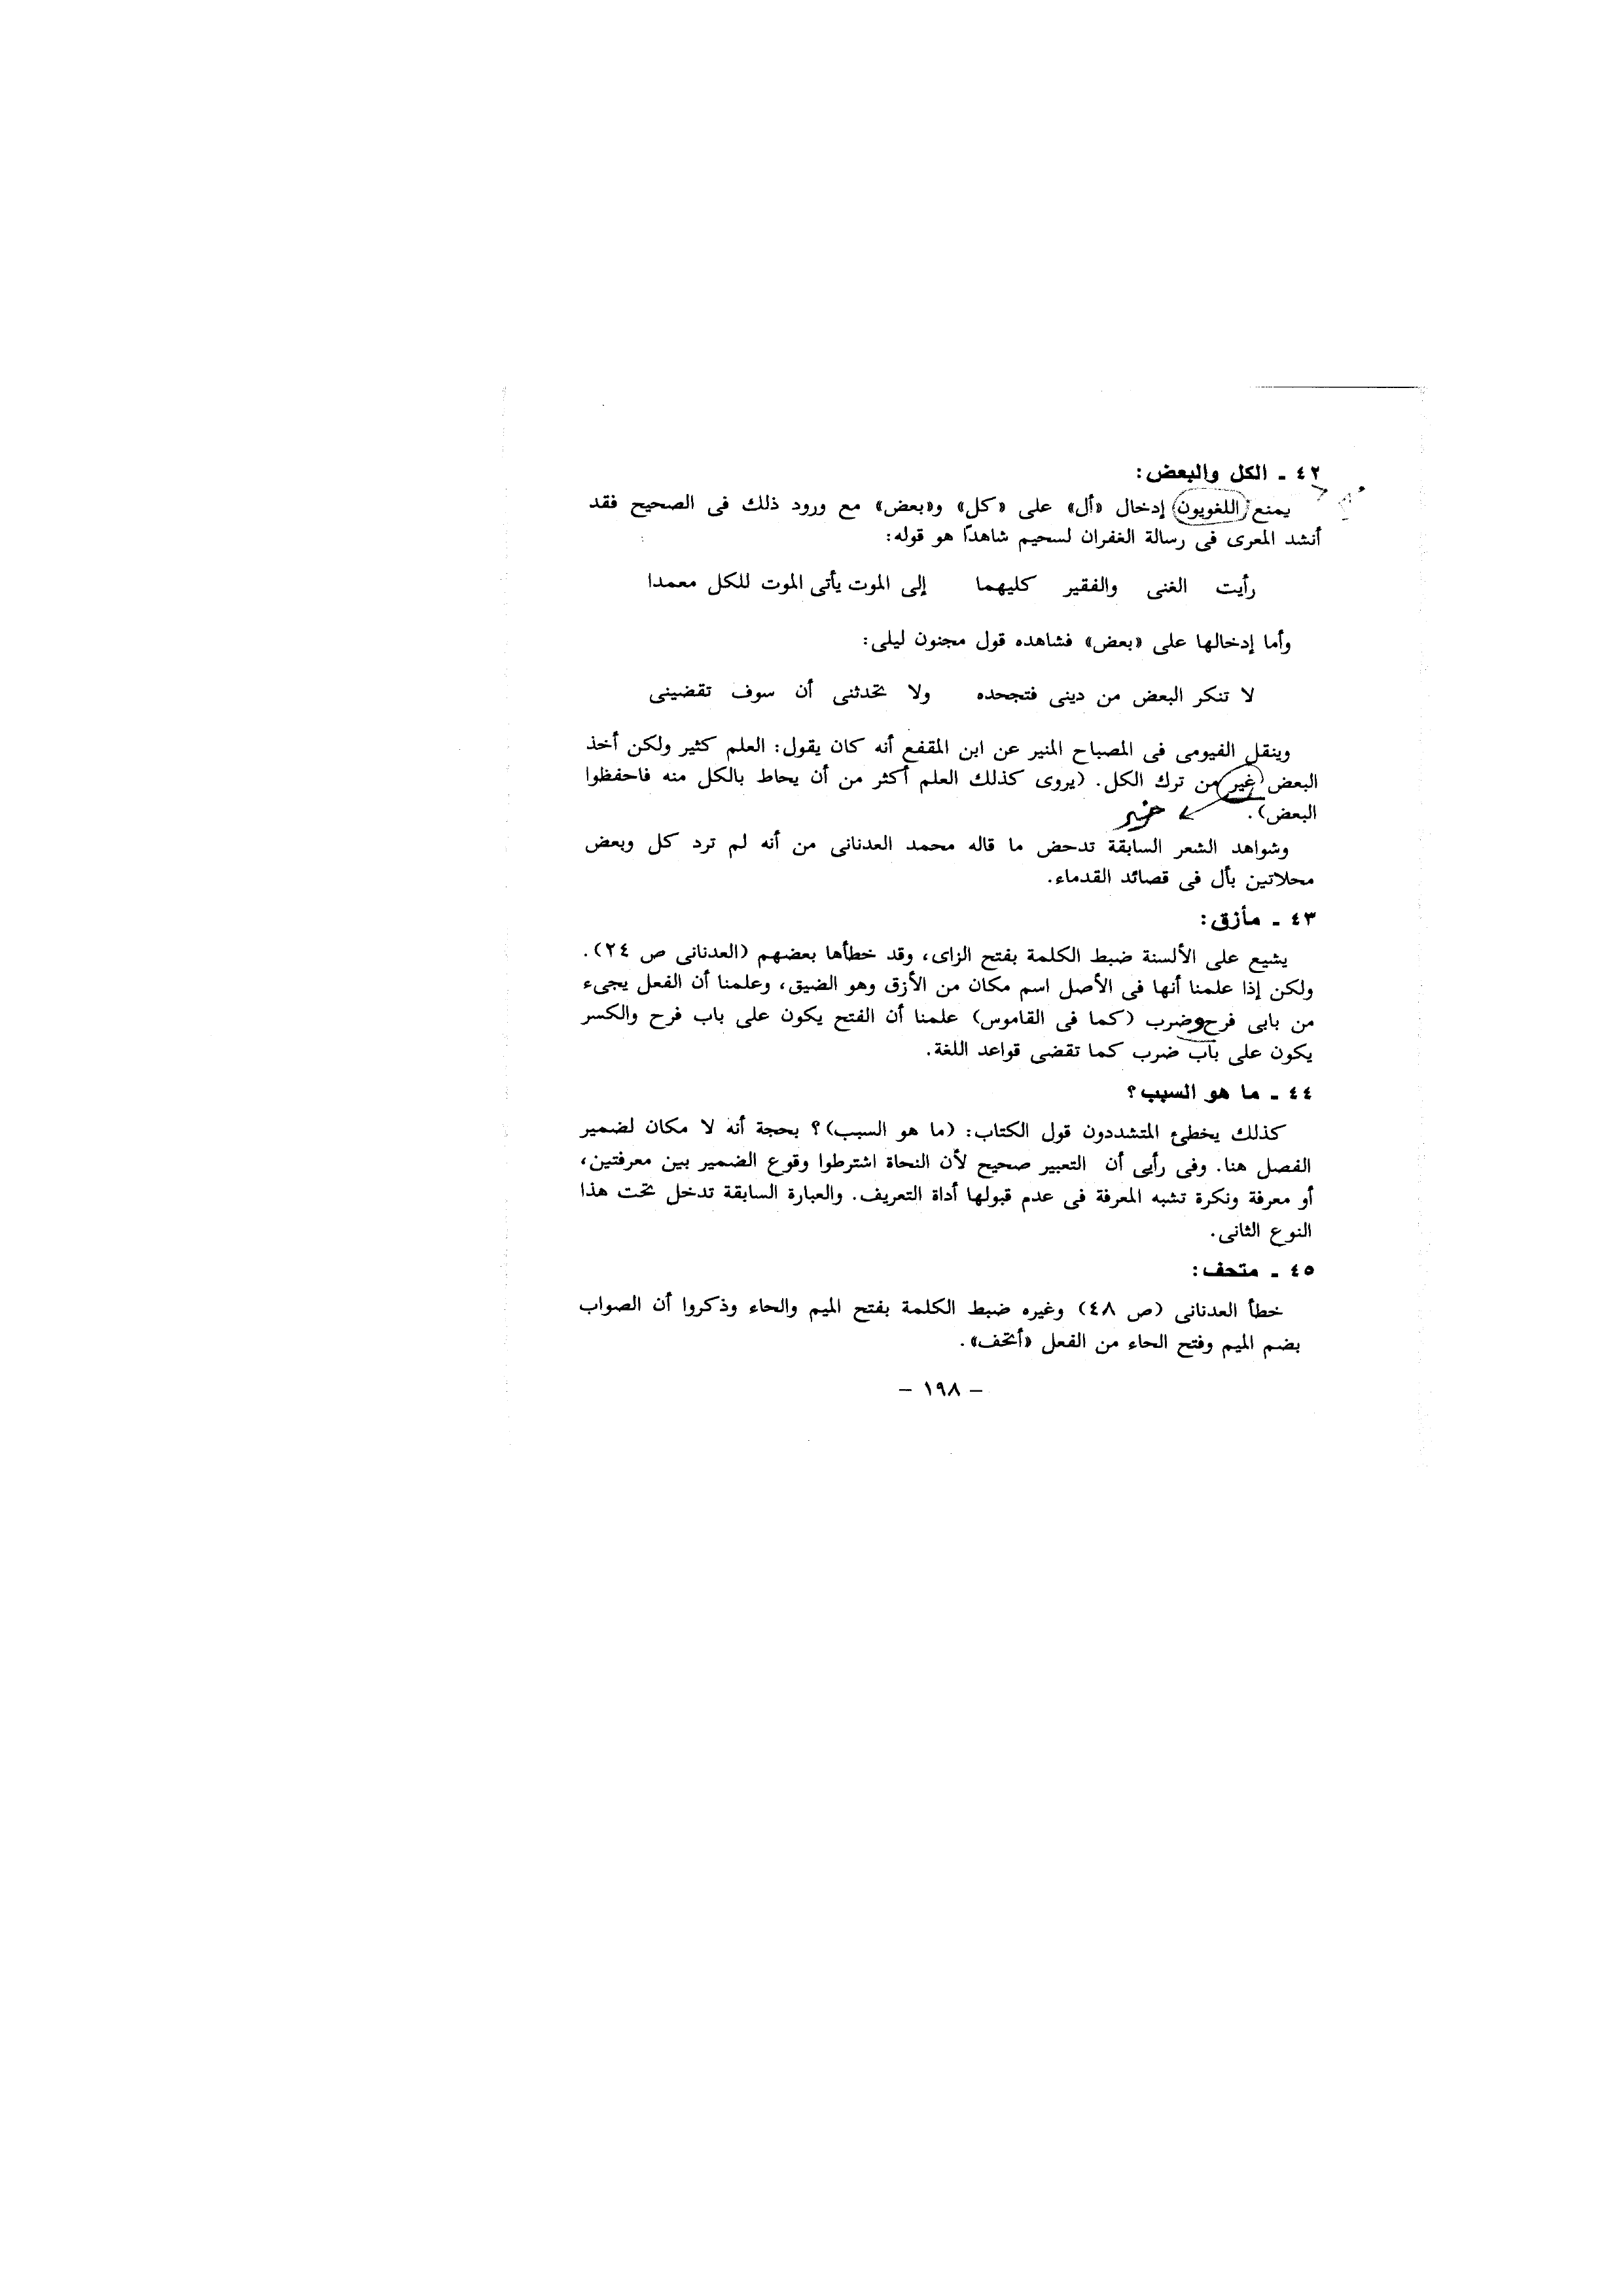 ٤٢ ـ الكل والبعض:
يمنع اللغويون إدخال «أل» على «كل» و«بعض» مع ورود ذلك فى الصحيح فقد
أنشد المعرى فى رسالة الغفران لسحيم شاهدًا هو قوله:
رأيت الغنى والفقير كليهما إلى الموت يأتى الموت للكل معمدا
وأما إدخالها على «بعض» فشاهده قول مجنون ليلى:
لا تنكر البعض من دينى فتجحده ولا تحدثنى أن سوف تقضينى
وينقل الفيومى فى المصباح المنير عن ابن المقفع أنه كان يقول: العلم كثير ولكن أخذ
البعض غير من ترك الكل. (يروى كذلك العلم أكثر من أن يحاط بالكل منه فاحفظوا
البعض). خير
وشواهد الشعر السابقة تدحض ما قاله محمد العدنانى من أنه لم ترد كل وبعض
محلاتين بأل فى قصائد القدماء.
٤٣ ـ مأزق:
يشيع على الألسنة ضبط الكلمة بفتح الزاى، وقد خطأها بعضهم (العدنانى ص ٢٤).
ولكن إذا علمنا أنها فى الأصل اسم مكان من الأزق وهو الضيق، وعلمنا أن الفعل يجىء
من بابى فرح وضرب (كما فى القاموس) علمنا أن الفتح يكون على باب فرح والكسر
يكون على باب ضرب كما تقضى قواعد اللغة.
٤٤ ـ ما هو السبب؟
كذلك يخطئ المتشددون قول الكتاب: (ما هو السبب)؟ بحجة أنه لا مكان لضمير
الفصل هنا. وفى رأيى أن التعبير صحيح لأن النحاة اشترطوا وقوع الضمير بين معرفتين،
أو معرفة ونكرة تشبه المعرفة فى عدم قبولها أداة التعريف. والعبارة السابقة تدخل تحت هذا
النوع الثانى.
٤٥ ـ متحف:
خطأ العدنانى (ص ٤٨) وغيره ضبط الكلمة بفتح الميم والحاء وذكروا أن الصواب
بضم الميم وفتح الحاء من الفعل «أتحف».
– ١٩٨ –